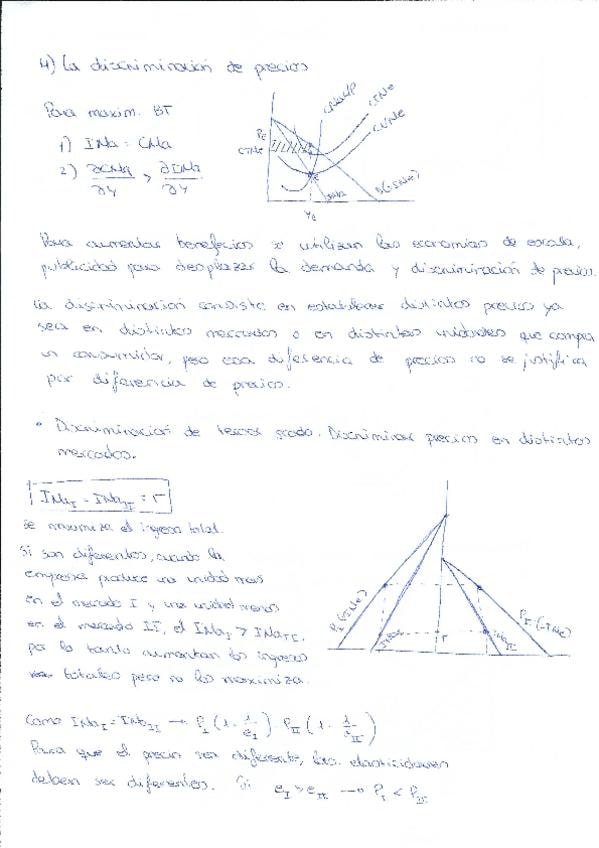 4) La discriminación de precios
Para maxim. BT
1) IMa = CMa
2) ∂CMa/∂Y > ∂IMa/∂Y
CMaCP
CTMe
CVMe
Pe
CTMe
E
IMa
D(=IMe)
Ye
Para aumentar beneficios se utilizan las economías de escala,
publicidad para desplazar la demanda y discriminación de precios.
La discriminación consiste en establecer distintos precios ya
sea en distintos mercados o en distintas unidades que compra
un consumidor, pero esa diferencia de precios no se justifica
por diferencia de precios.
• Discriminación de tercer grado. Discriminar precios en distintos
mercados.
IMa_I - IMa_II = r
Se maximiza el ingreso total.
Si son diferentes, cuando la
empresa produce una unidad mas
en el mercado I y una unidad menos
en el mercado II, el IMa_I > IMa_II,
por lo tanto aumentan los ingresos
totales pero no los maximiza.
P_I (=IMe)
IMa_I
r
IMa_II
P_II (=IMe)
Como IMa_I = IMa_II → P_I (1 - 1/e_I) P_II (1 - 1/e_II)
Para que el precio sea diferente, las elasticidades
deben ser diferentes. Si e_I > e_II → P_I < P_II